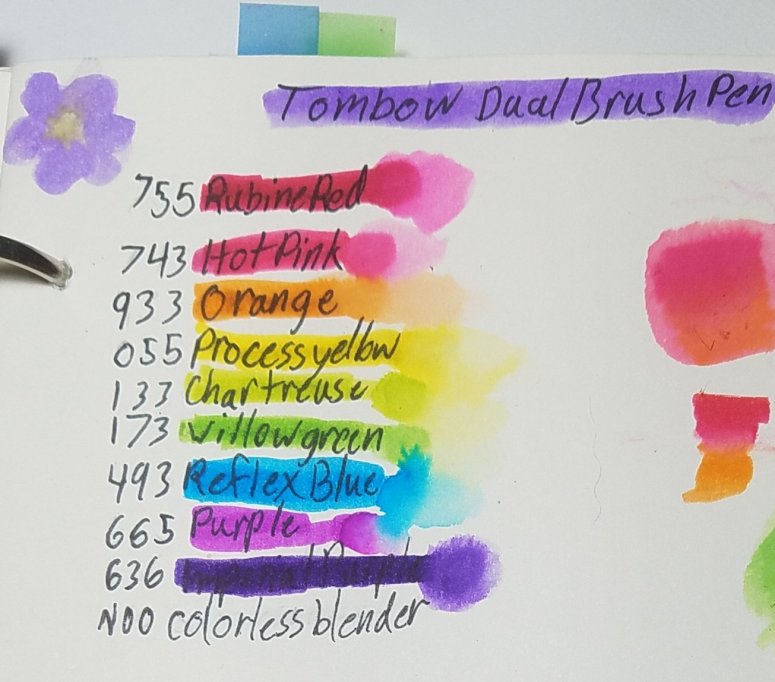 Tombow Dual Brush Pen
755 Rubine Red
743 Hot Pink
933 Orange
055 Process yellow
133 Chartreuse
173 willow green
493 Reflex Blue
665 Purple
636 Imperial Purple
N00 colorless blender